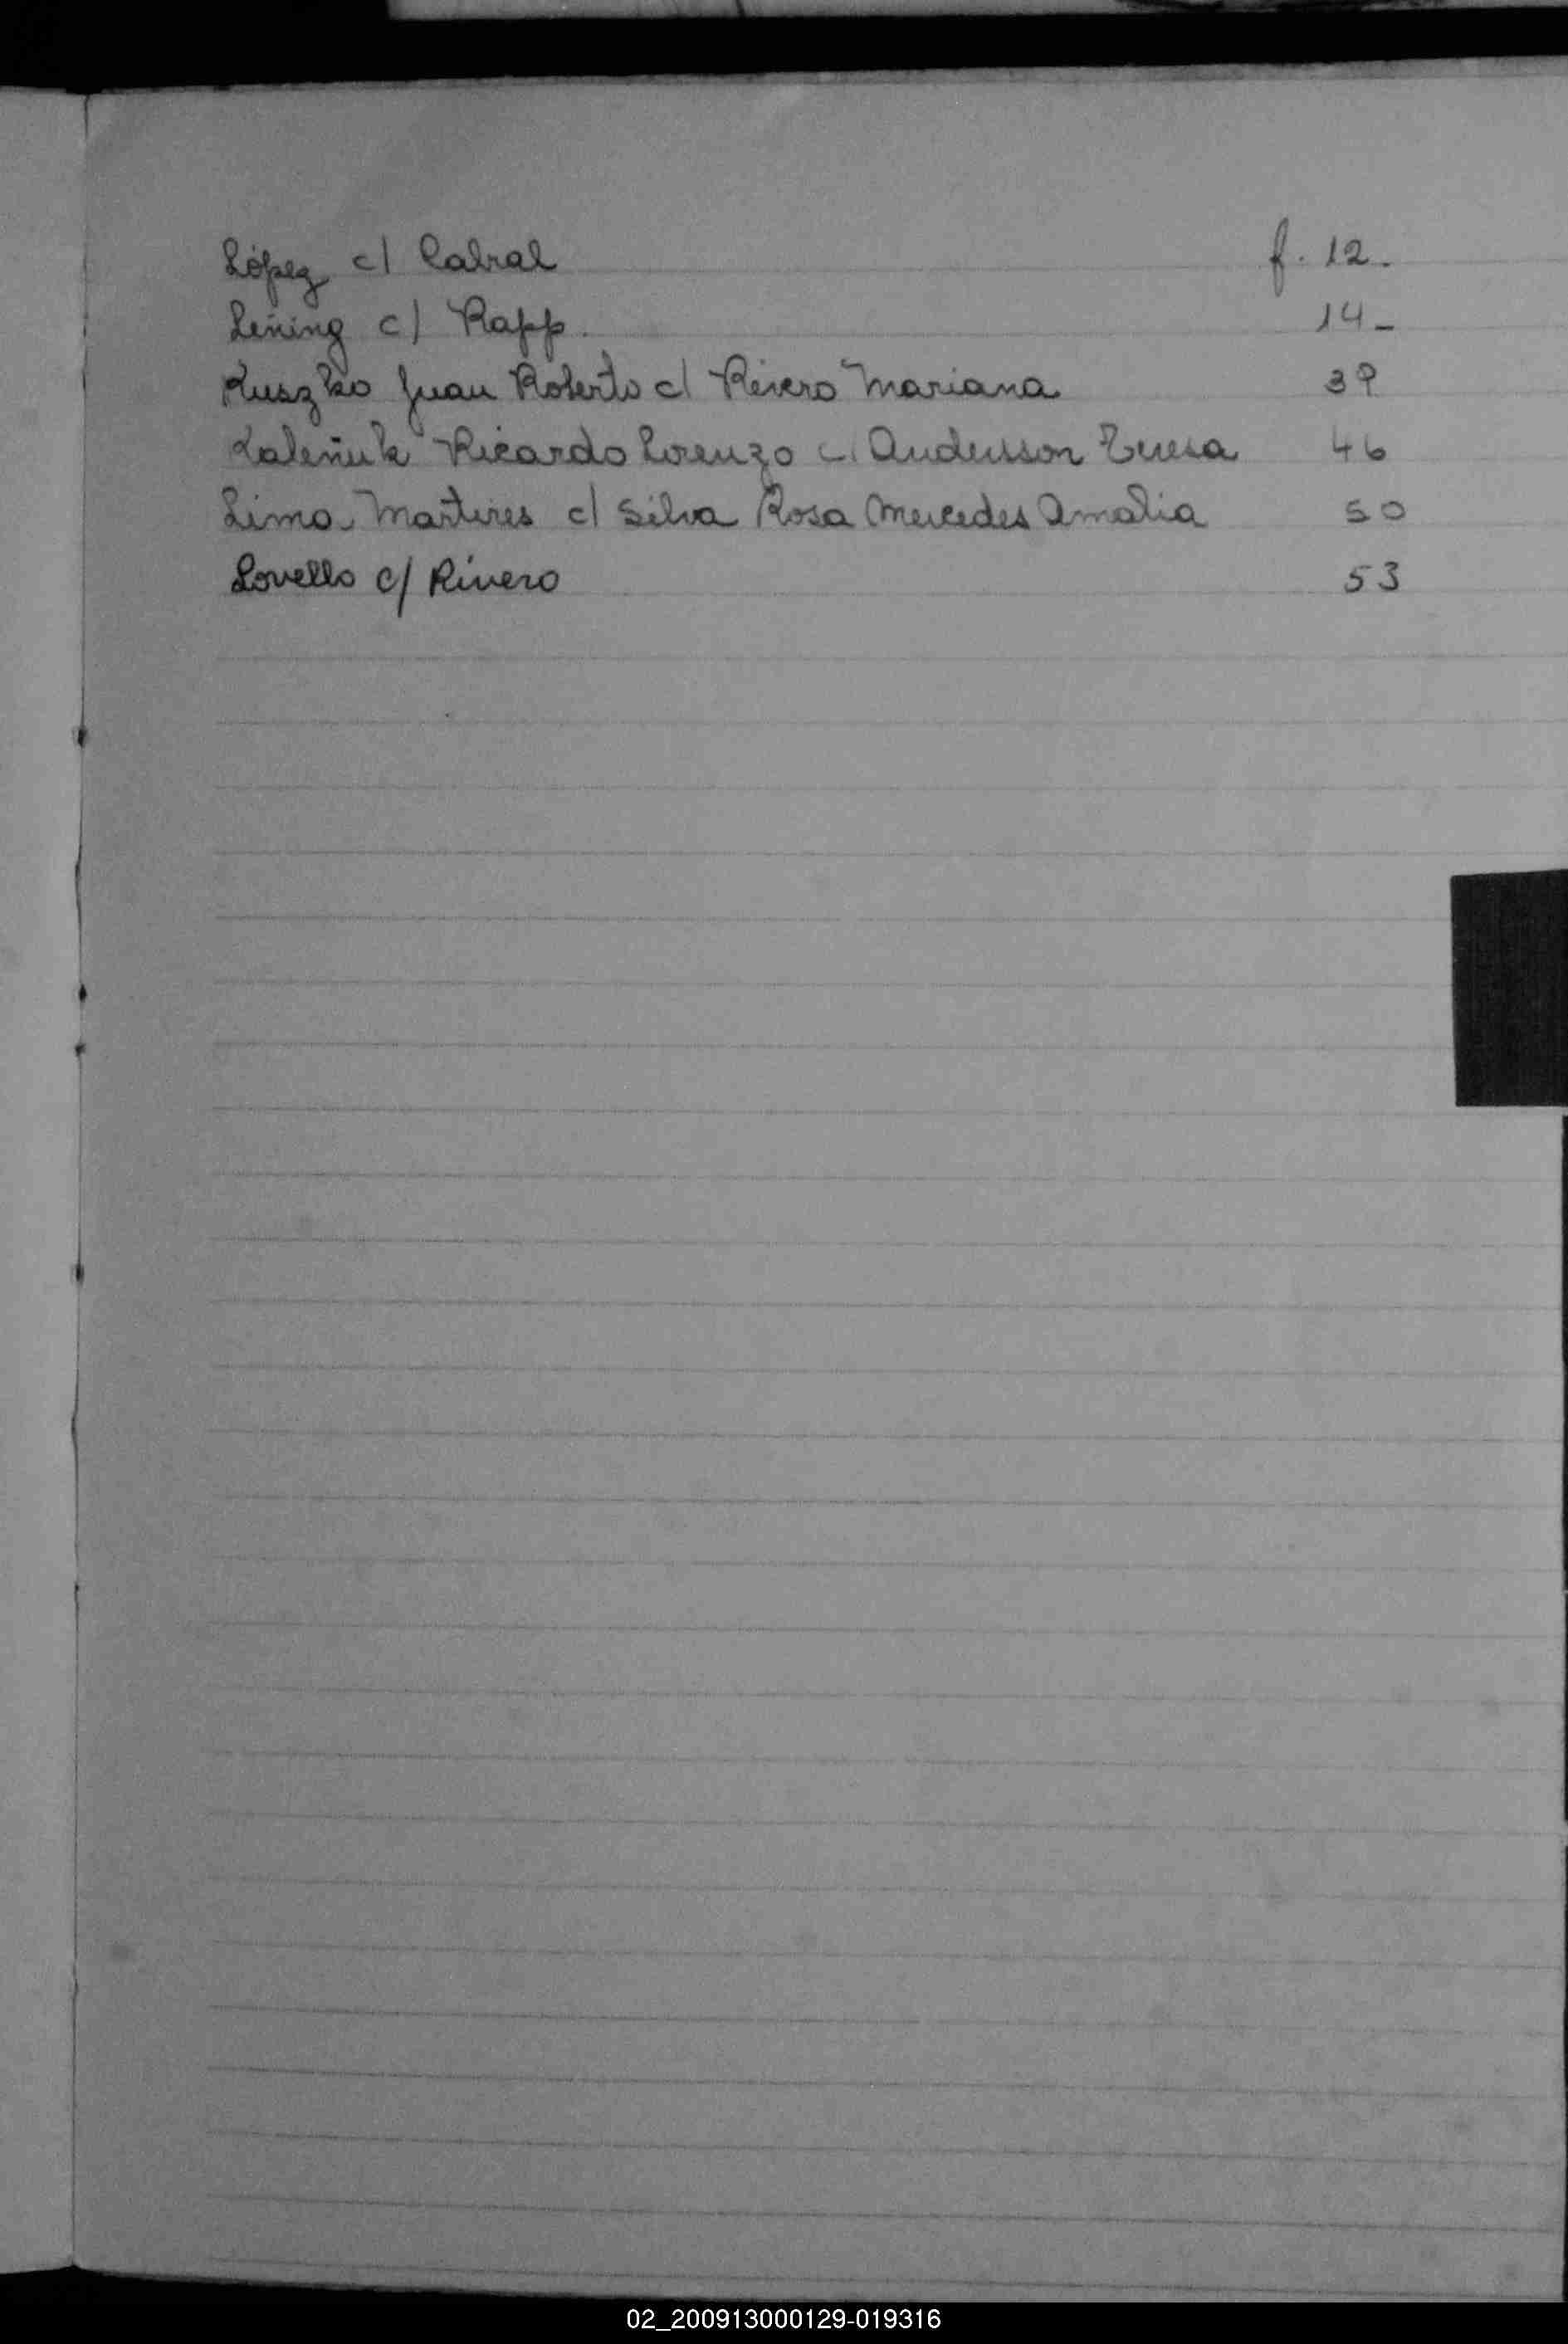 López c/ Cabral f. 12.
Lening c/ Rapp. 14-
Kuszko Juan Roberto c/ Rivero Mariana 39
Kaleñuk Ricardo Lorenzo c/ Andersson Teresa 46
Lima Martires c/ Silva Rosa Mercedes Amalia 50
Lovello c/ Rivero 53
02_200913000129-019316